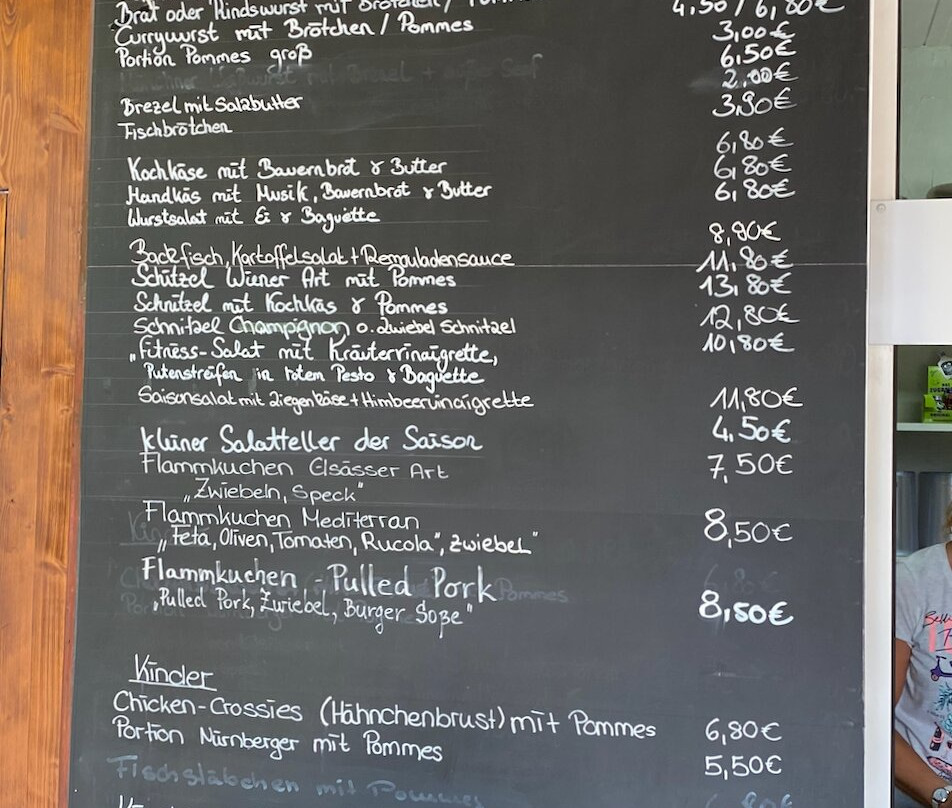 Brat oder Rindswurst mit Brötchen / Pommes 4,50 / 6,80€
Currywurst mit Brötchen / Pommes 3,00€
Portion Pommes groß 6,50€
2,00€
Brezel mit Salzbutter 3,90€
Fischbrötchen
6,80€
Kochkäse mit Bauernbrot & Butter 6,80€
Handkäs mit Musik, Bauernbrot & Butter 6,80€
Wurstsalat mit Ei & Baguette
8,90€
Backfisch, Kartoffelsalat + Remouladensauce 11,80€
Schitzel Wiener Art mit Pommes 13,80€
Schnitzel mit Kochkäs & Pommes 12,80€
Schnitzel Champignon o. Zwiebel Schnitzel 10,80€
„Fitness-Salat mit Kräutervinaigrette,
Putenstreifen in rotem Pesto & Baguette
Saisonsalat mit Ziegenkäse + Himbeervinaigrette 11,80€
kleiner Salatteller der Saison 4,50€
Flammkuchen Elsässer Art 7,50€
„Zwiebeln, Speck"
Flammkuchen Mediterran 8,50€
„Feta, Oliven, Tomaten, Rucola", Zwiebel"
Flammkuchen - Pulled Pork
„Pulled Pork, Zwiebel, Burger Soße" 8,50€
Kinder
Chicken-Crossies (Hähnchenbrust) mit Pommes 6,80€
Portion Nürnberger mit Pommes 5,50€
Fischstäbchen mit Pommes